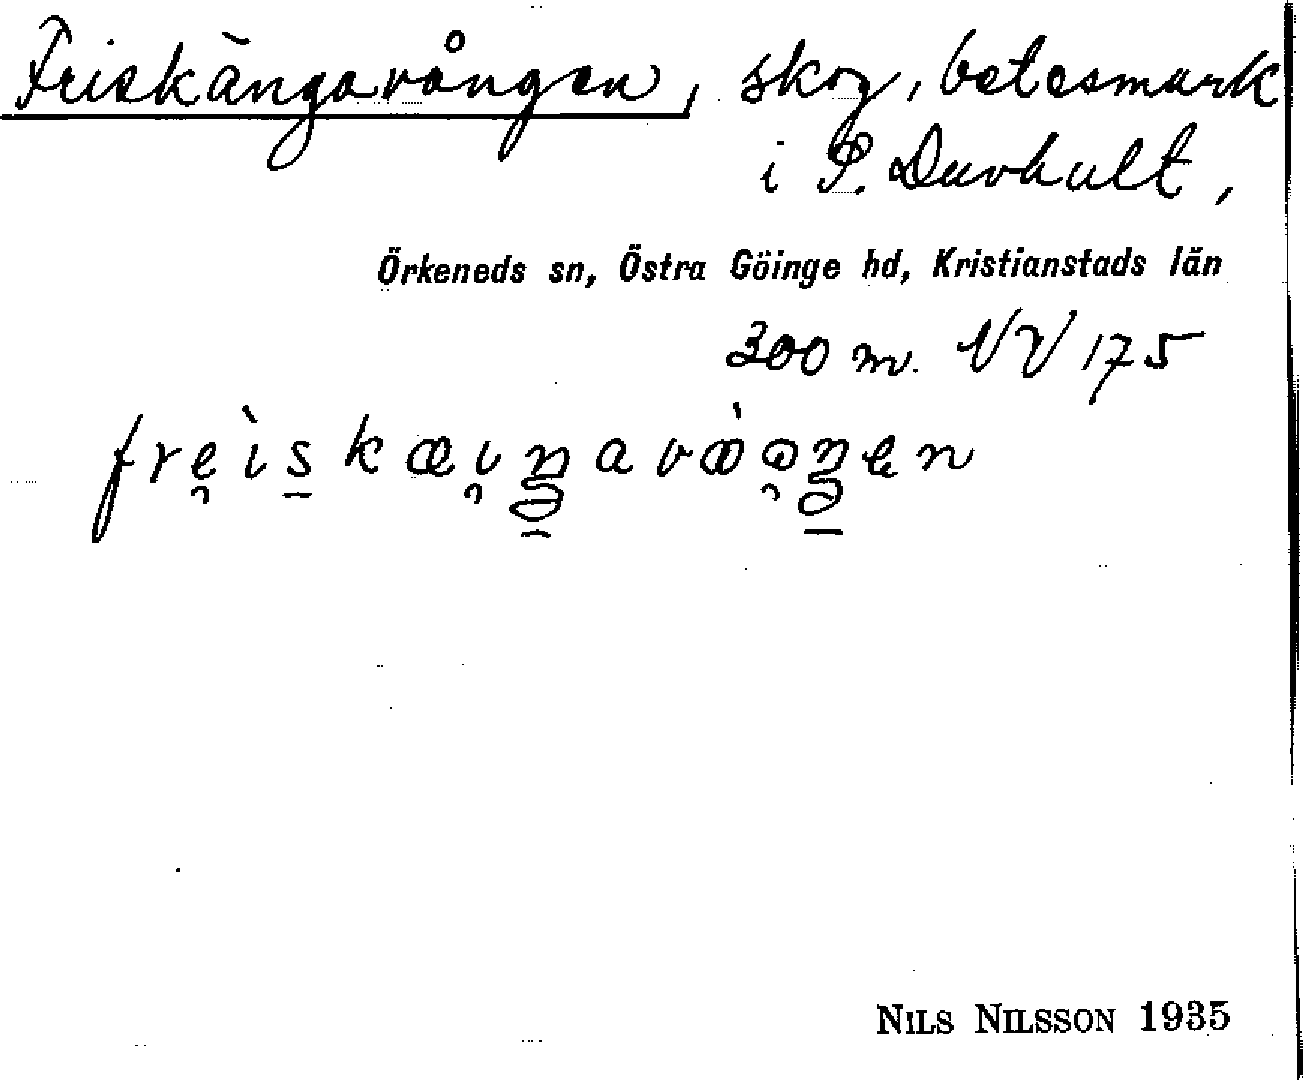 Friskängavången, skog, betesmark
i S. Duvhult,
Örkeneds sn, Östra Göinge hd, Kristianstads län
300 m. VV 175
NILS NILSSON 1935